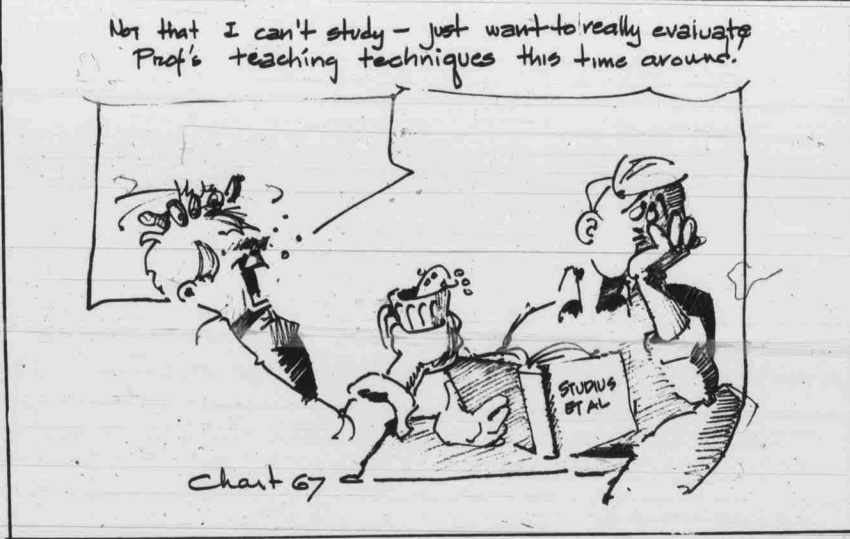 Not that I can't study – just want to really evaluate
Prof's teaching techniques this time around.
STUDIUS
ET AL
Chart 67